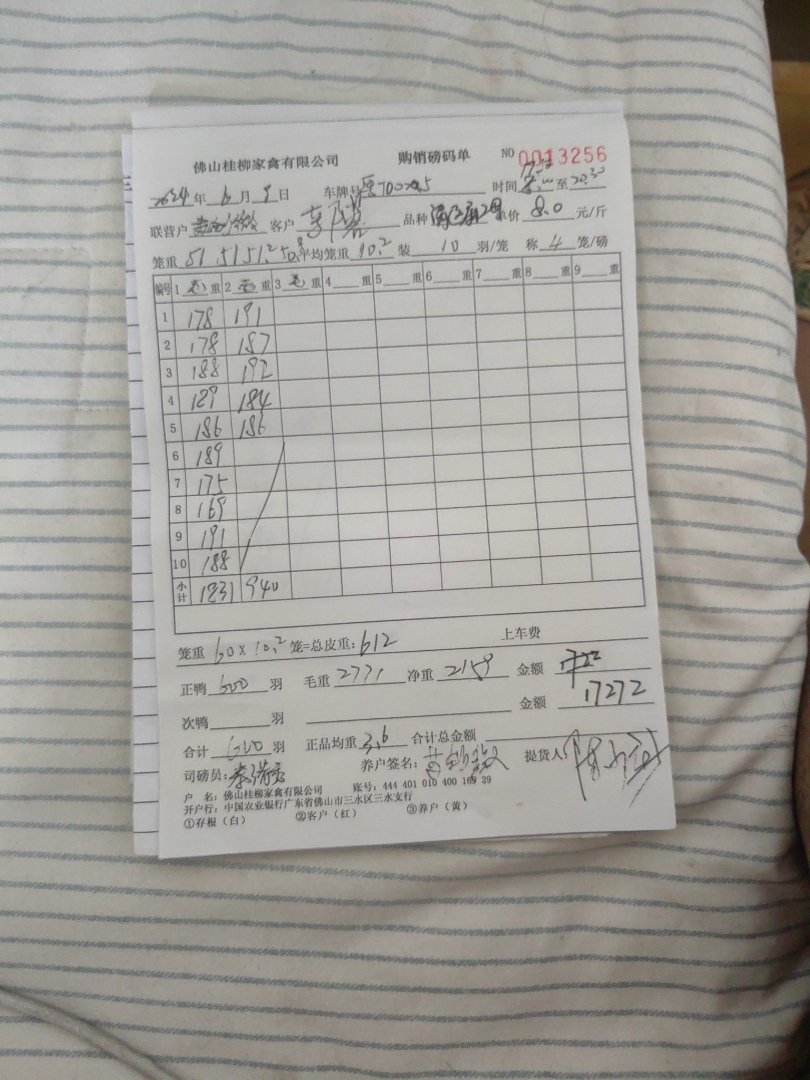 佛山桂柳家禽有限公司 购销磅码单 NO 0013256
2024年6月9日 车牌号 时间 至 22:30
联营户 客户 李 品种 单价 8.0 元/斤
笼重 51 51 51.2 50.8 平均笼重 10.2 装 10 羽/笼 称 4 笼/磅
编号 1 毛 重 2 毛 重 3 毛 重 4 重 5 重 6 重 7 重 8 重 9 重
1 178 191
2 178 187
3 188 192
4 189 184
5 186 186
6 189
7 175
8 169
9 191
10 188
小计 1831 940
笼重 60×10.2 笼=总皮重: 612 上车费
正鸭 600 羽 毛重 2771 净重 2159 金额
次鸭 羽 金额 17272
合计 600 羽 正品均重 3.6 合计总金额
司磅员: 养户签名: 提货人
户 名: 佛山桂柳家禽有限公司 账号: 444 401 010 400 169 29
开户行: 中国农业银行广东省佛山市三水区三水支行
①存根（白） ②客户（红） ③养户（黄）